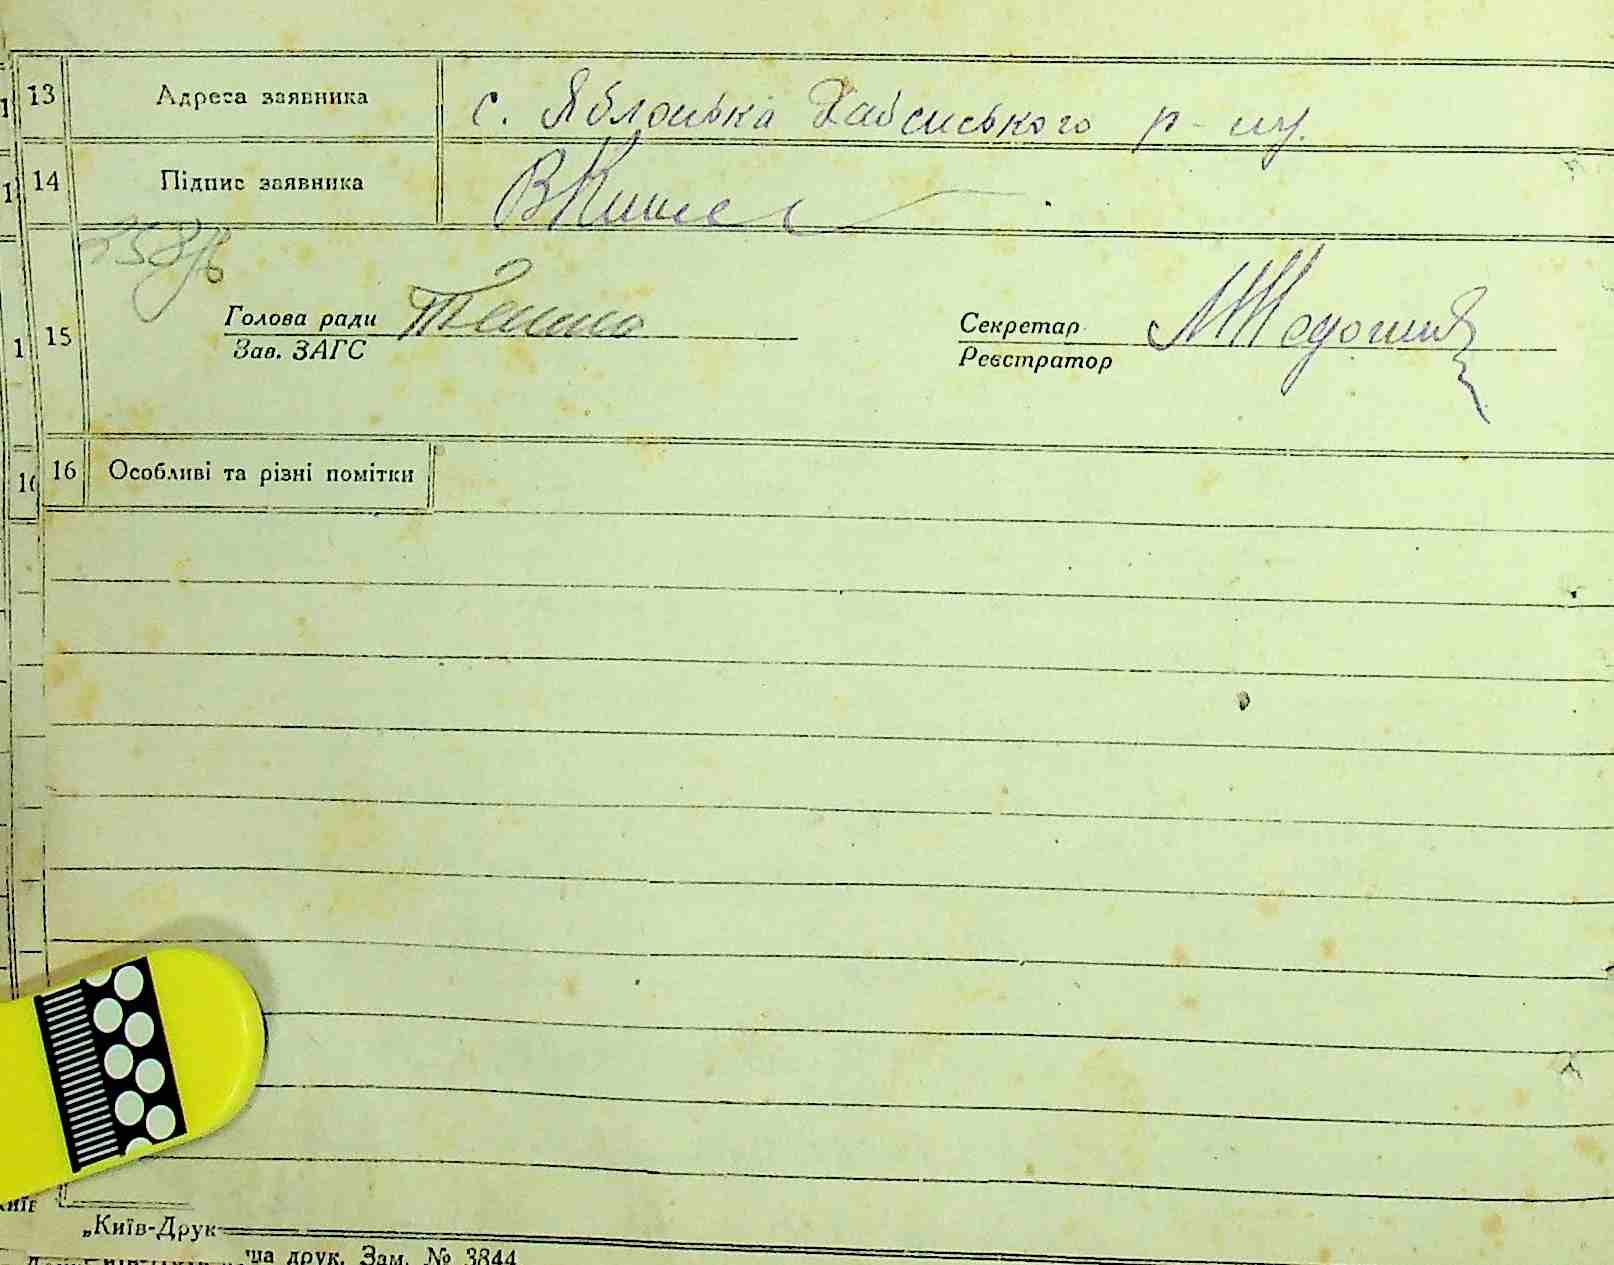 13 Адреса заявника с. Яблонька Хабенського р-ну.
14 Підпис заявника
15
Голова ради Секретар
Зав. ЗАГС Реєстратор
16 Особливі та різні помітки
„Київ-Друк
ша друк. Зам. № 3844